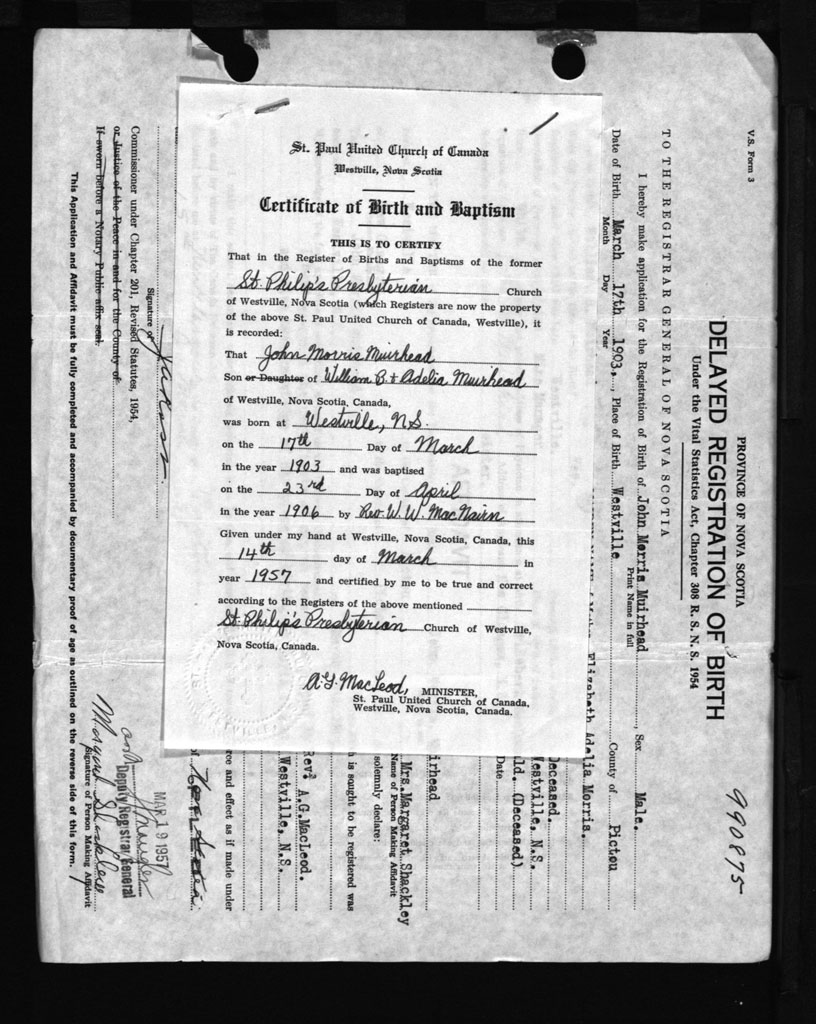 St. Paul United Church of Canada
Westville, Nova Scotia
Certificate of Birth and Baptism
THIS IS TO CERTIFY
That in the Register of Births and Baptisms of the former
St. Philip's Presbyterian Church
of Westville, Nova Scotia (which Registers are now the property
of the above St. Paul United Church of Canada, Westville), it
is recorded:
That John Morris Muirhead
Son or Daughter of William B. & Adelia Muirhead
of Westville, Nova Scotia, Canada,
was born at Westville, N.S.
on the 17th Day of March
in the year 1903 and was baptised
on the 23rd Day of April
in the year 1906 by Rev. W. W. MacNairn
Given under my hand at Westville, Nova Scotia, Canada, this
14th day of March in
year 1957 and certified by me to be true and correct
according to the Registers of the above mentioned
St. Philip's Presbyterian Church of Westville,
Nova Scotia, Canada.
A. G. MacLeod, MINISTER,
St. Paul United Church of Canada,
Westville, Nova Scotia, Canada.
V.S. Form 3
990875
PROVINCE OF NOVA SCOTIA
DELAYED REGISTRATION OF BIRTH
Under the Vital Statistics Act, Chapter 308 R. S. N. S. 1954
TO THE REGISTRAR GENERAL OF NOVA SCOTIA
I hereby make application for the Registration of Birth of John Morris Muirhead, Sex Male.
Print Name in full
Date of Birth March 17th 1903., Place of Birth Westville County of Pictou
Month Day Year
Elizabeth Adelia Morris.
Deceased.
Westville, N.S.
ld. (Deceased)
Date
irhead
Mrs. Margaret Shackley
Name of Person Making Affidavit
solemnly declare:
h is sought to be registered was
Rev. A.G.MacLeod.
Westville, N.S.
rce and effect as if made under
Signature of
Commissioner under Chapter 201, Revised Statutes, 1954,
or Justice of the Peace in and for the County of
If sworn before a Notary Public affix seal.
MAR 19 1957
Deputy Registrar General
Margaret Shackley
Signature of Person Making Affidavit
This Application and Affidavit must be fully completed and accompanied by documentary proof of age as outlined on the reverse side of this form.